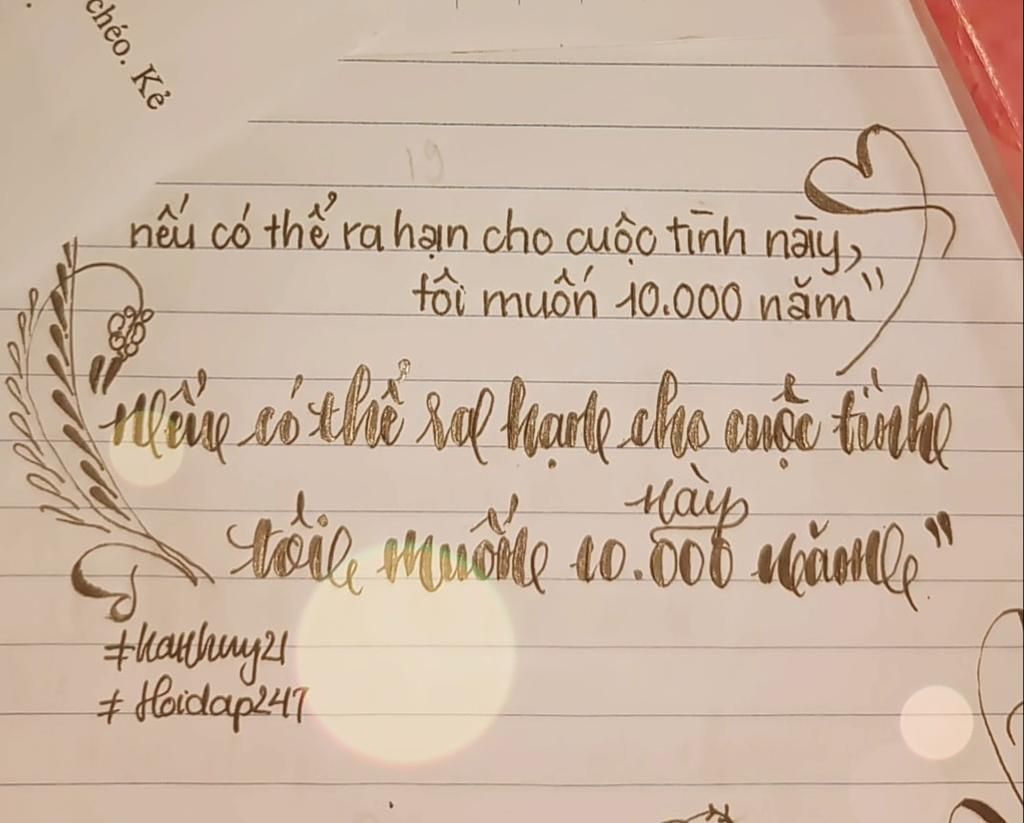 chéo. Kẻ
19
nếu có thể ra hạn cho cuộc tình này,
tôi muốn 10.000 năm"
"Nếu có thể ra hạn cho cuộc tình
này
tôi muốn 10.000 năm"
#hanhuy21
#Hoidap247